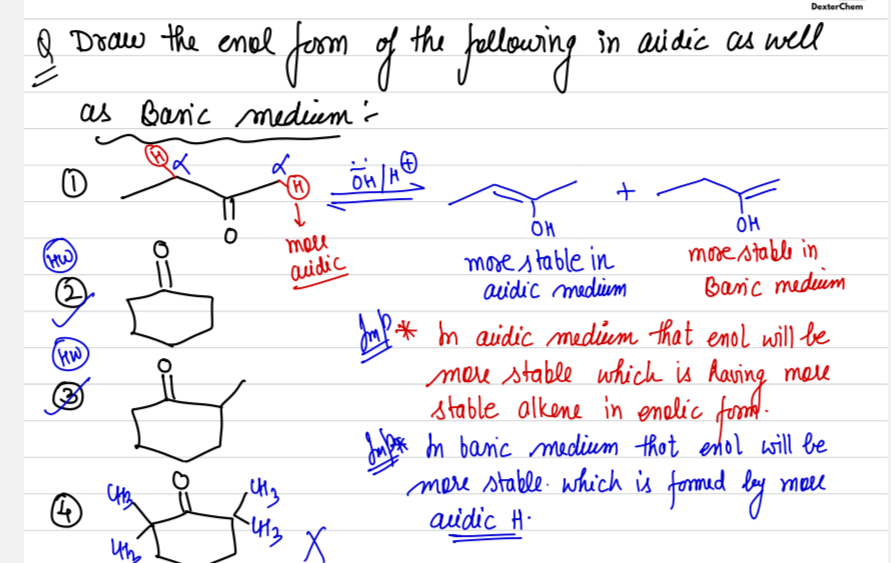 DexterChem
Q Draw the enol form of the following in acidic as well
as Basic medium :-
① H α α H ÖH/H⊕ +
O OH OH
more acidic
more stable in acidic medium
more stable in Basic medium
HW
② O
Imp * In acidic medium that enol will be
more stable which is having more
stable alkene in enolic form.
HW
③ O
Imp * In basic medium that enol will be
more stable. which is formed by more
acidic H.
④ CH3 O CH3
CH3 CH3 X